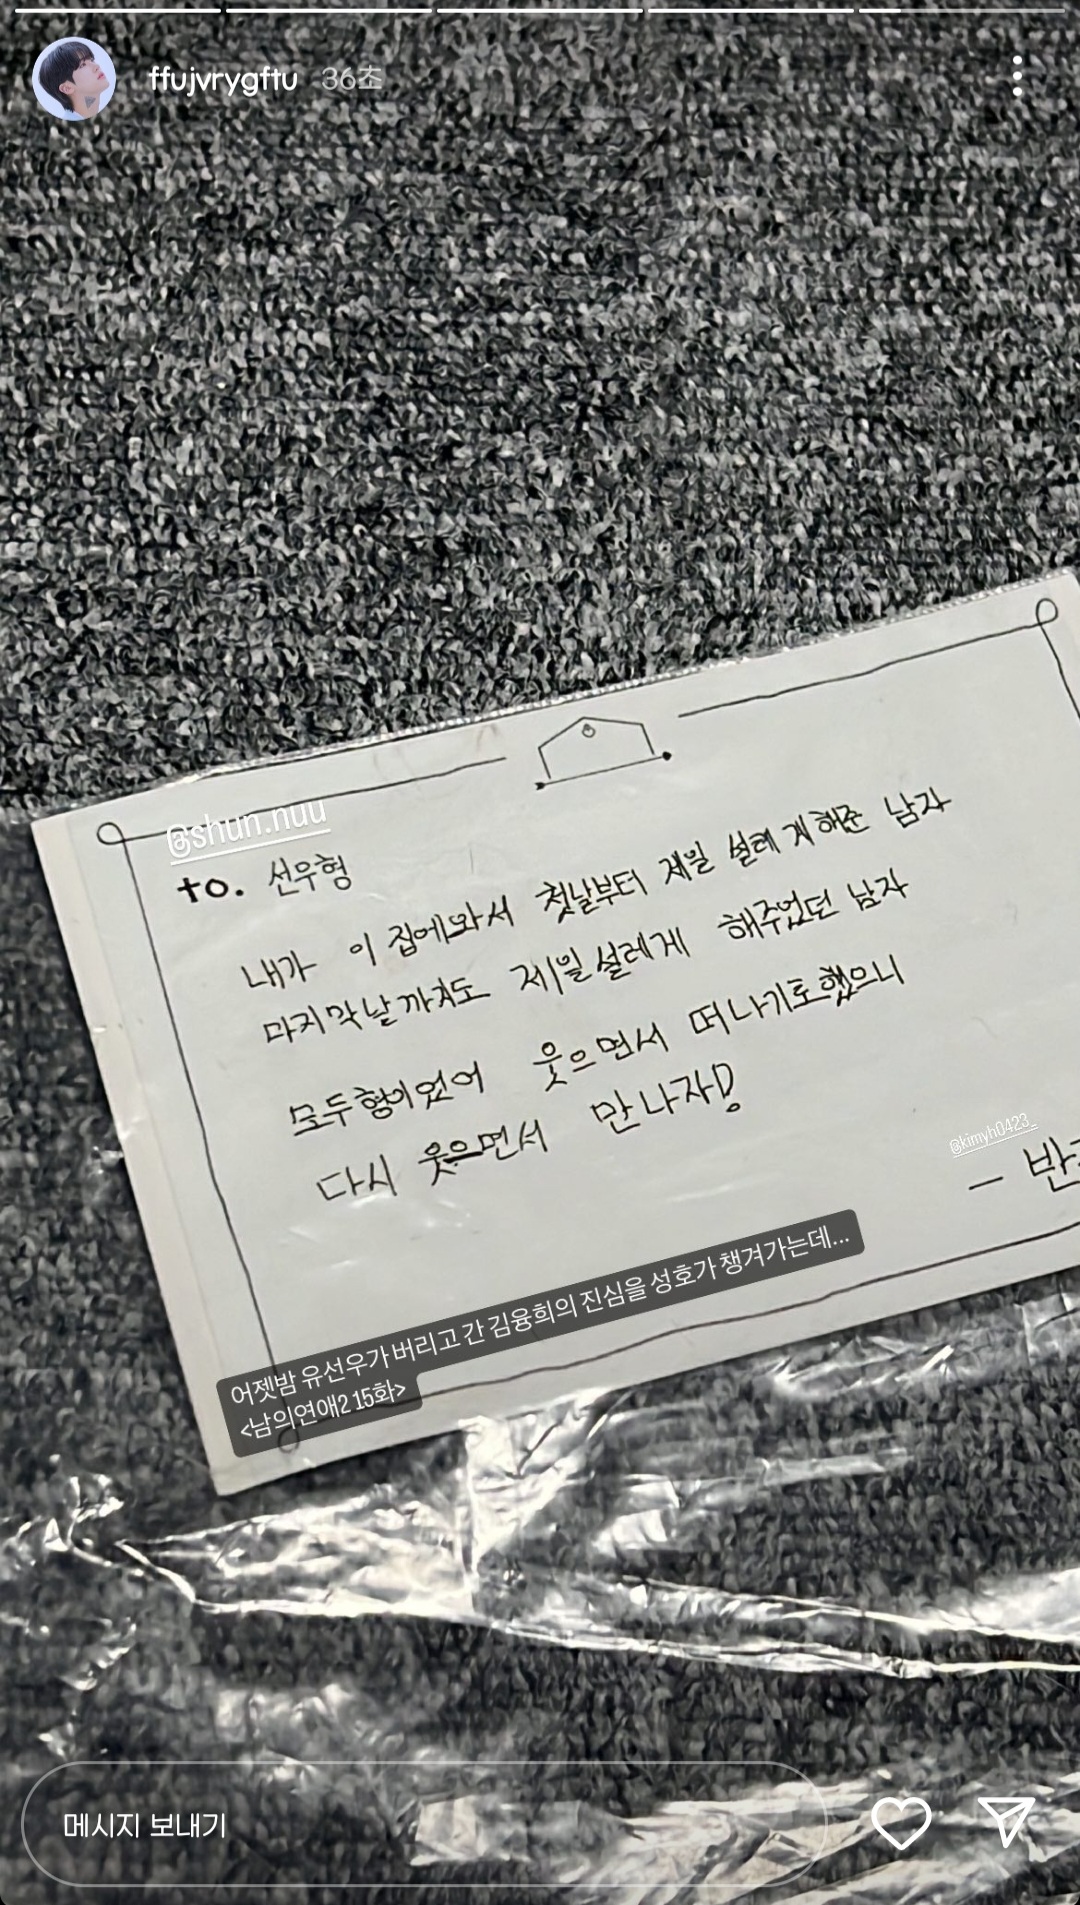 ffujvrygftu 36초
@shun.nuu
to. 선우형
내가 이 집에와서 첫날부터 제일 설레게 해준 남자
마지막날까지도 제일 설레게 해주었던 남자
모두형이었어 웃으면서 떠나기로했으니
다시 웃으면서 만나자!
@kimyh0423_
– 반
어젯밤 유선우가 버리고 간 김융희의 진심을 성호가 챙겨가는데...
<남의연애2 15화>
메시지 보내기